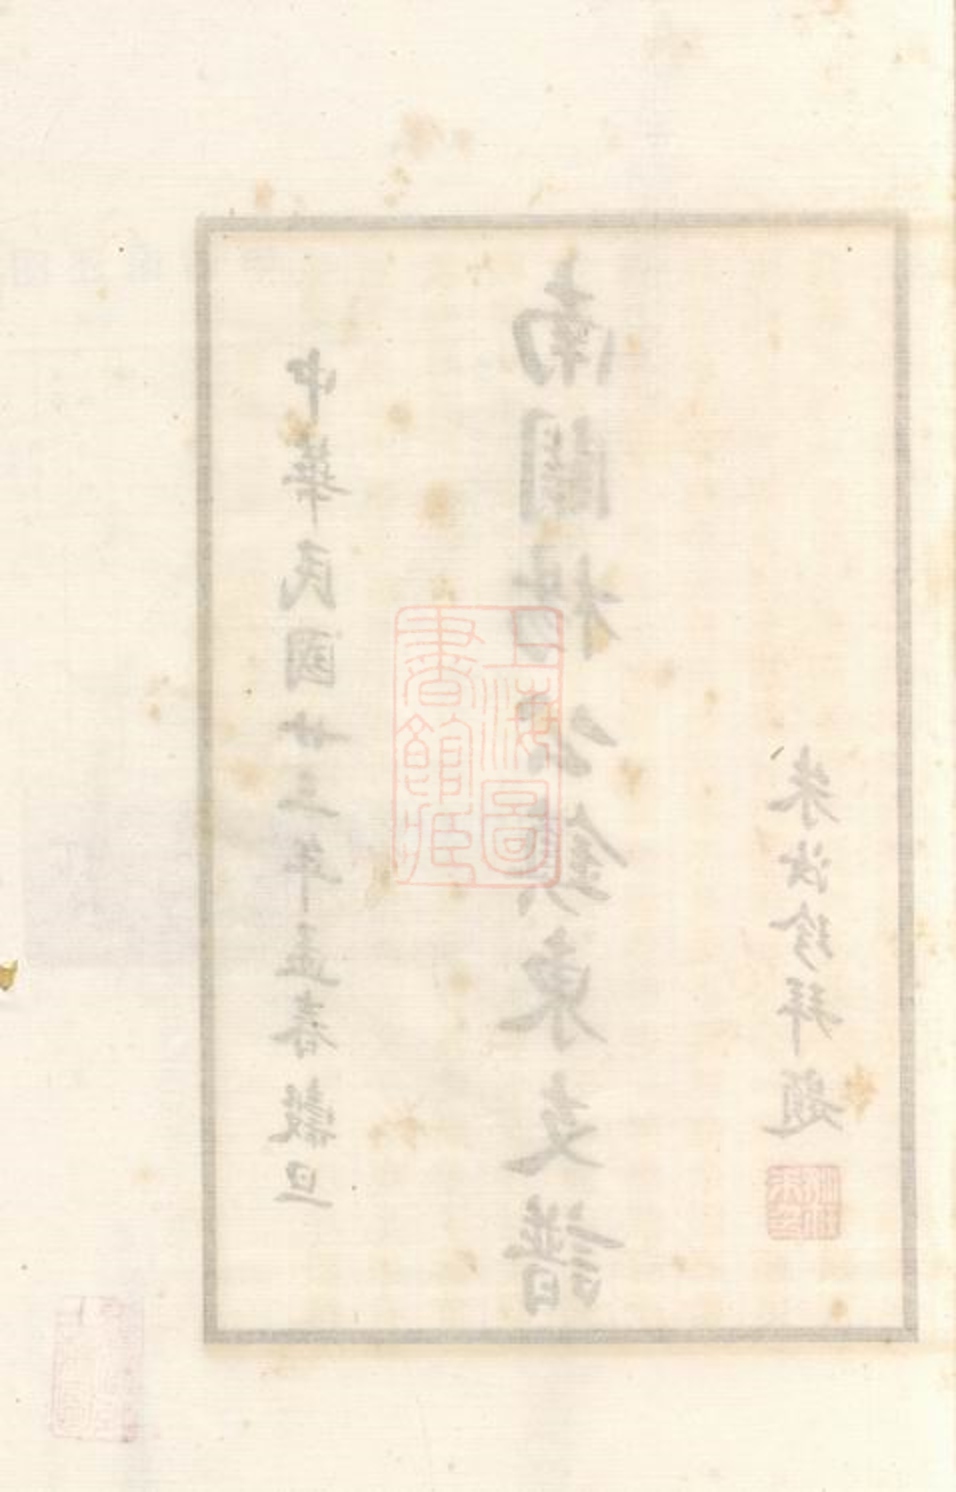 中華民國廿三年孟春穀旦
南關楊公鎮東支譜
朱汝珍拜題
上海圖書館藏